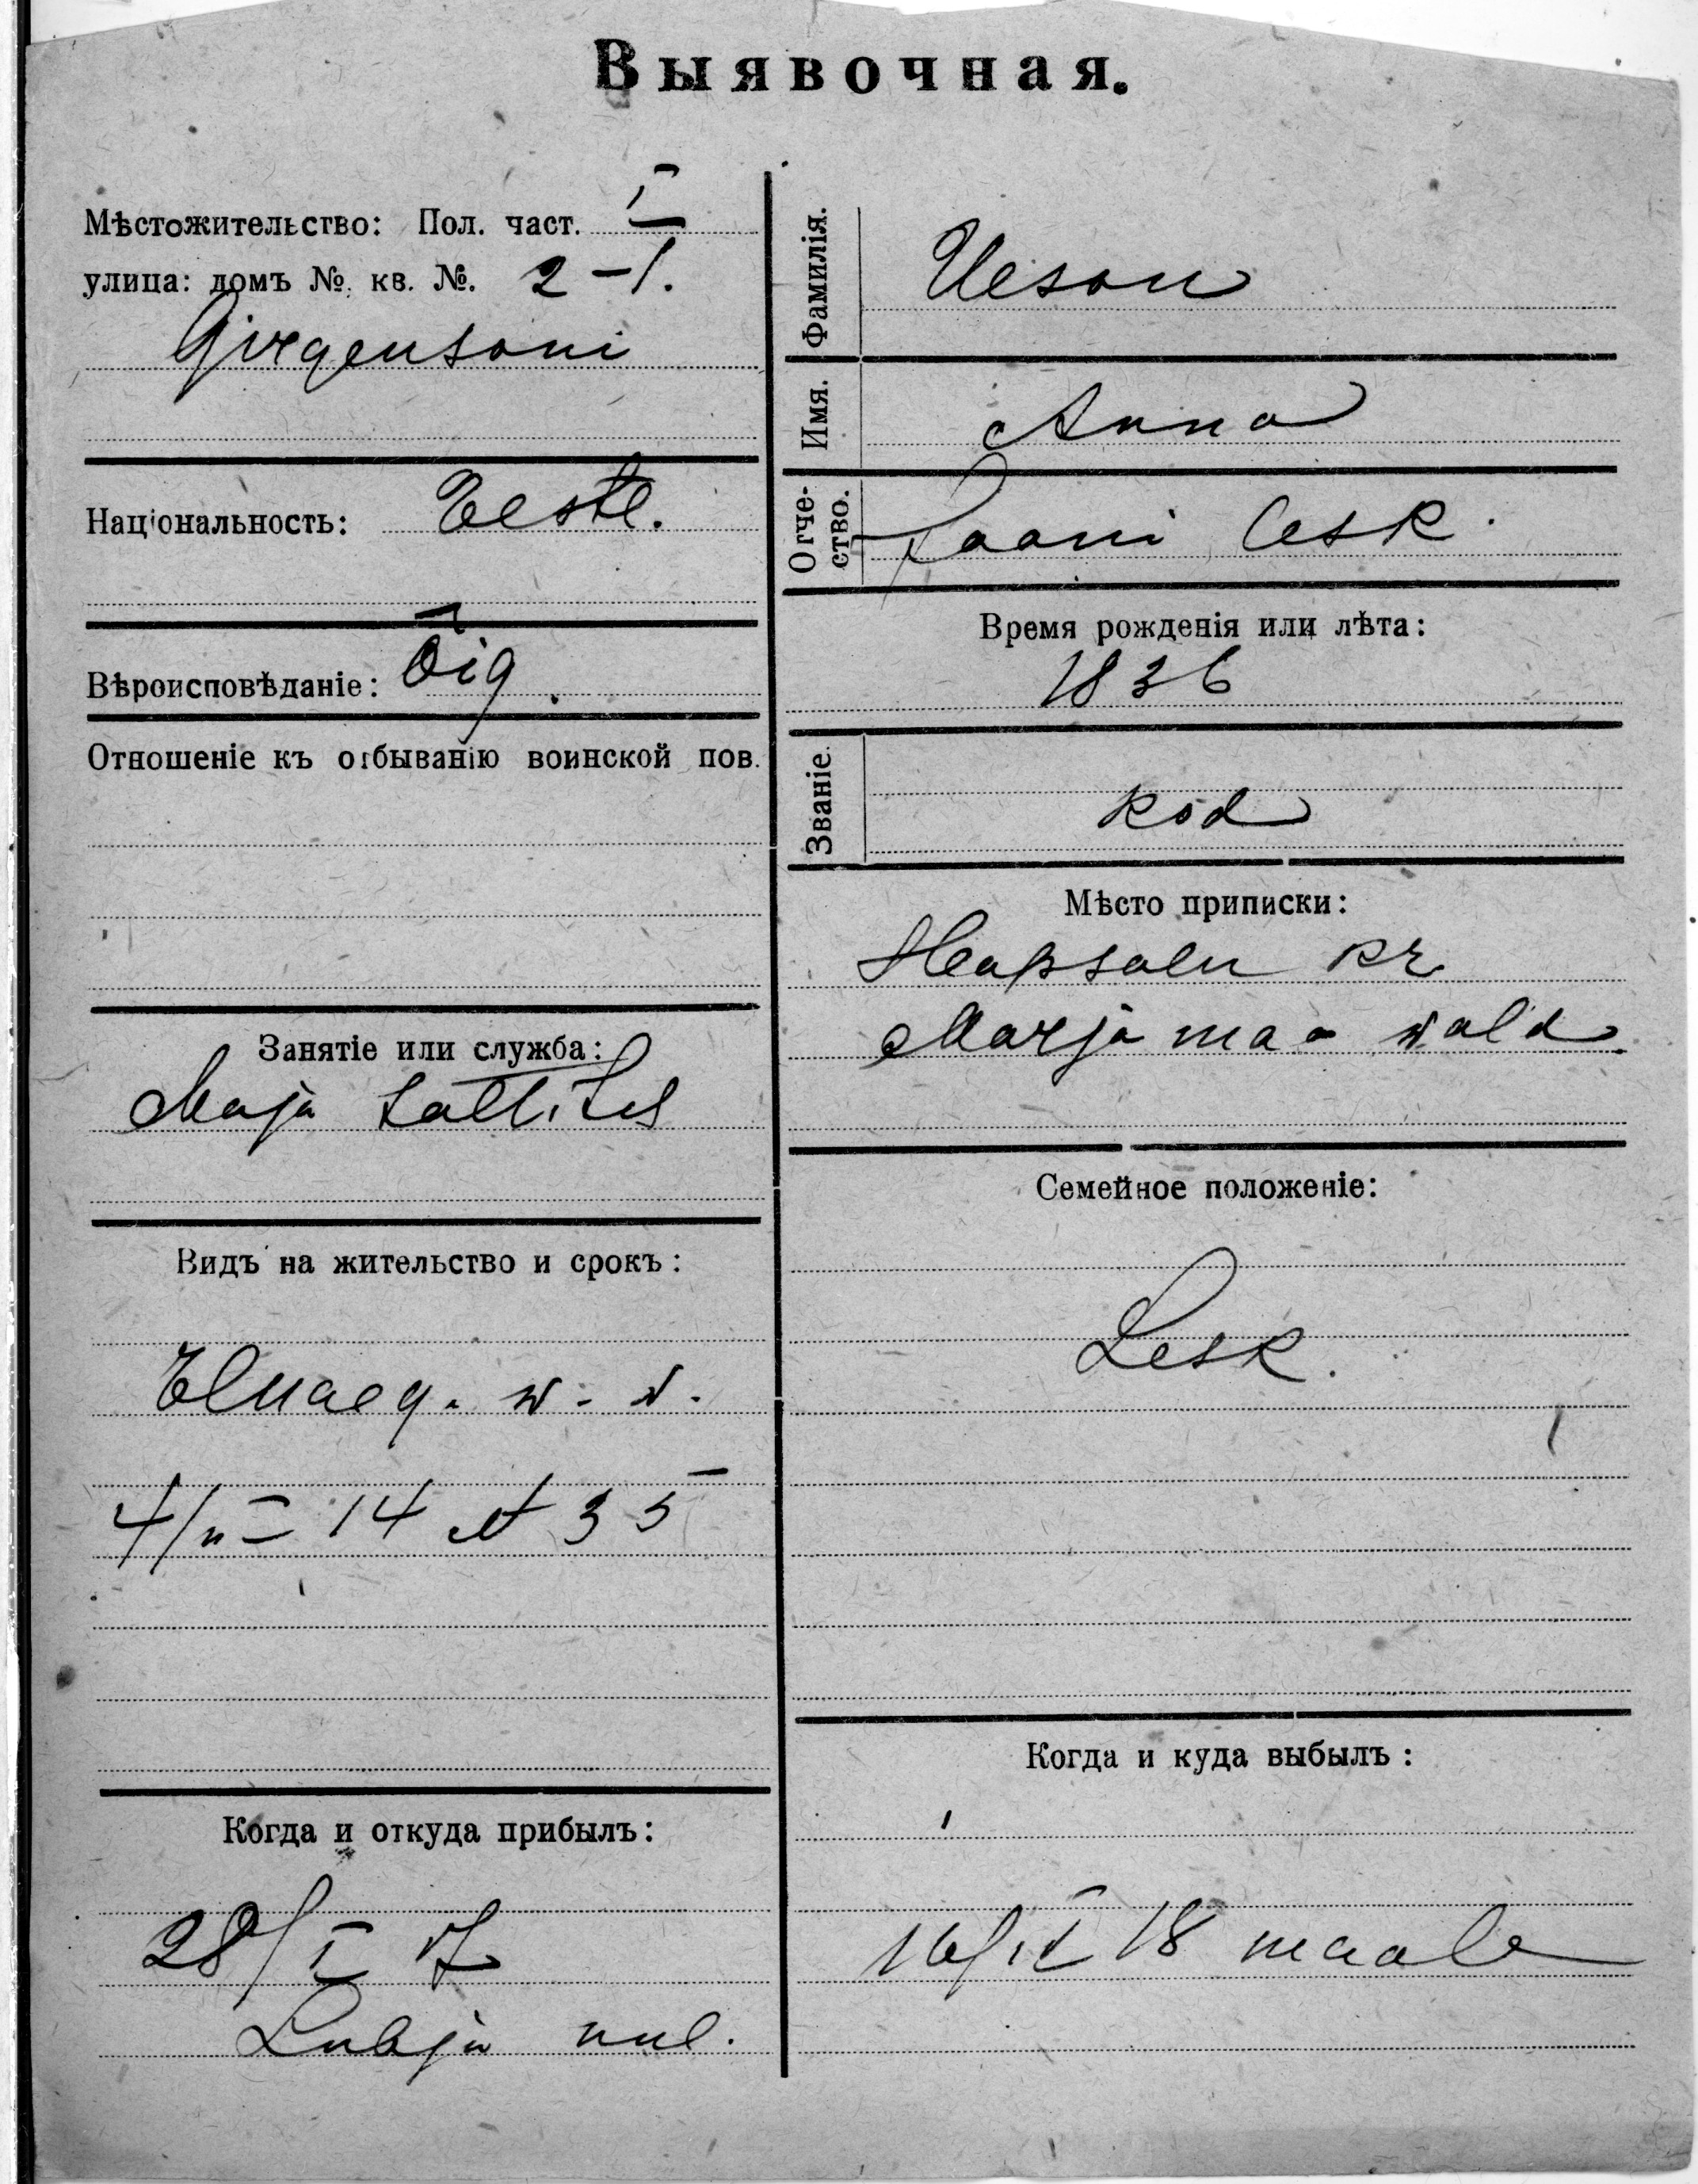 Выявочная.
Мѣстожительство: Пол. част. I
улица: домъ №. кв. №. 2 – 1.
Girgensoni
Національность: Eestl.
Вѣроисповѣданіе: Õig.
Отношеніе къ отбыванію воинской пов.
Занятіе или служба:
Maja tallitus
Видъ на жительство и срокъ:
Eluaeg. w. w.
14 № 35
Когда и откуда прибылъ:
28/I 17
Lubja uul.
Фамилія. Ueson
Имя. Anna
Отче-
ство. Jaani lesk.
Время рожденія или лѣта:
1836
Званіе. kod
Мѣсто приписки:
Hapsalu kr
Marjamaa wald.
Семейное положеніе:
Lesk.
Когда и куда выбылъ:
18 maale